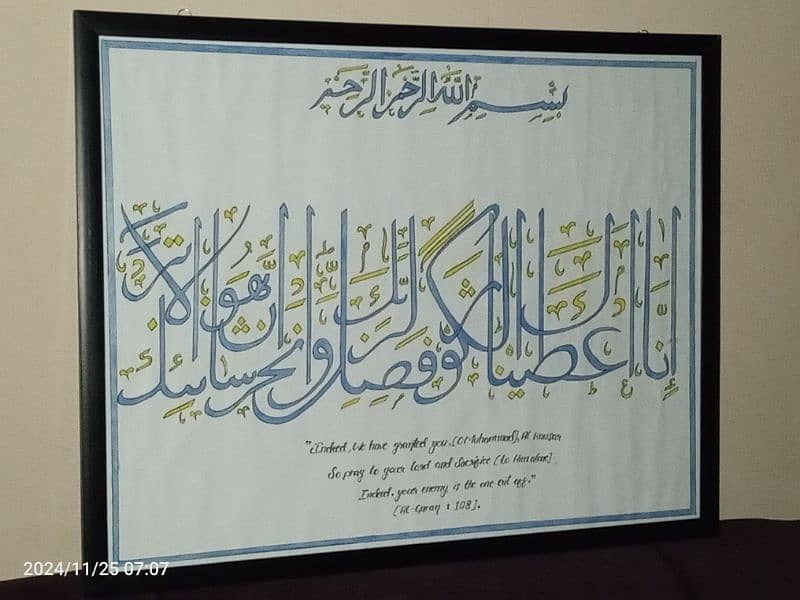 بسم الله الرحمن الرحيم
إنا أعطيناك الكوثر فصل لربك وانحر إن شانئك هو الأبتر
"Indeed, We have granted you, [O Muhammad], Al Kousar
So pray to your Lord and Sacrifice [to Him alone]
Indeed, your enemy is the one cut off."
[Al-Quran : 108].
2024/11/25 07:07